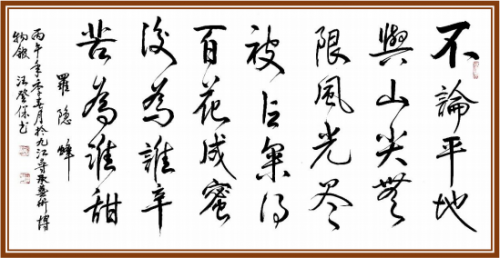 不論平地
與山尖無
限風光尽
被占采得
百花成蜜
後為誰辛
苦為誰甜
羅隐蜂
丙午年春月於九江藝術博
物館 汪登保书